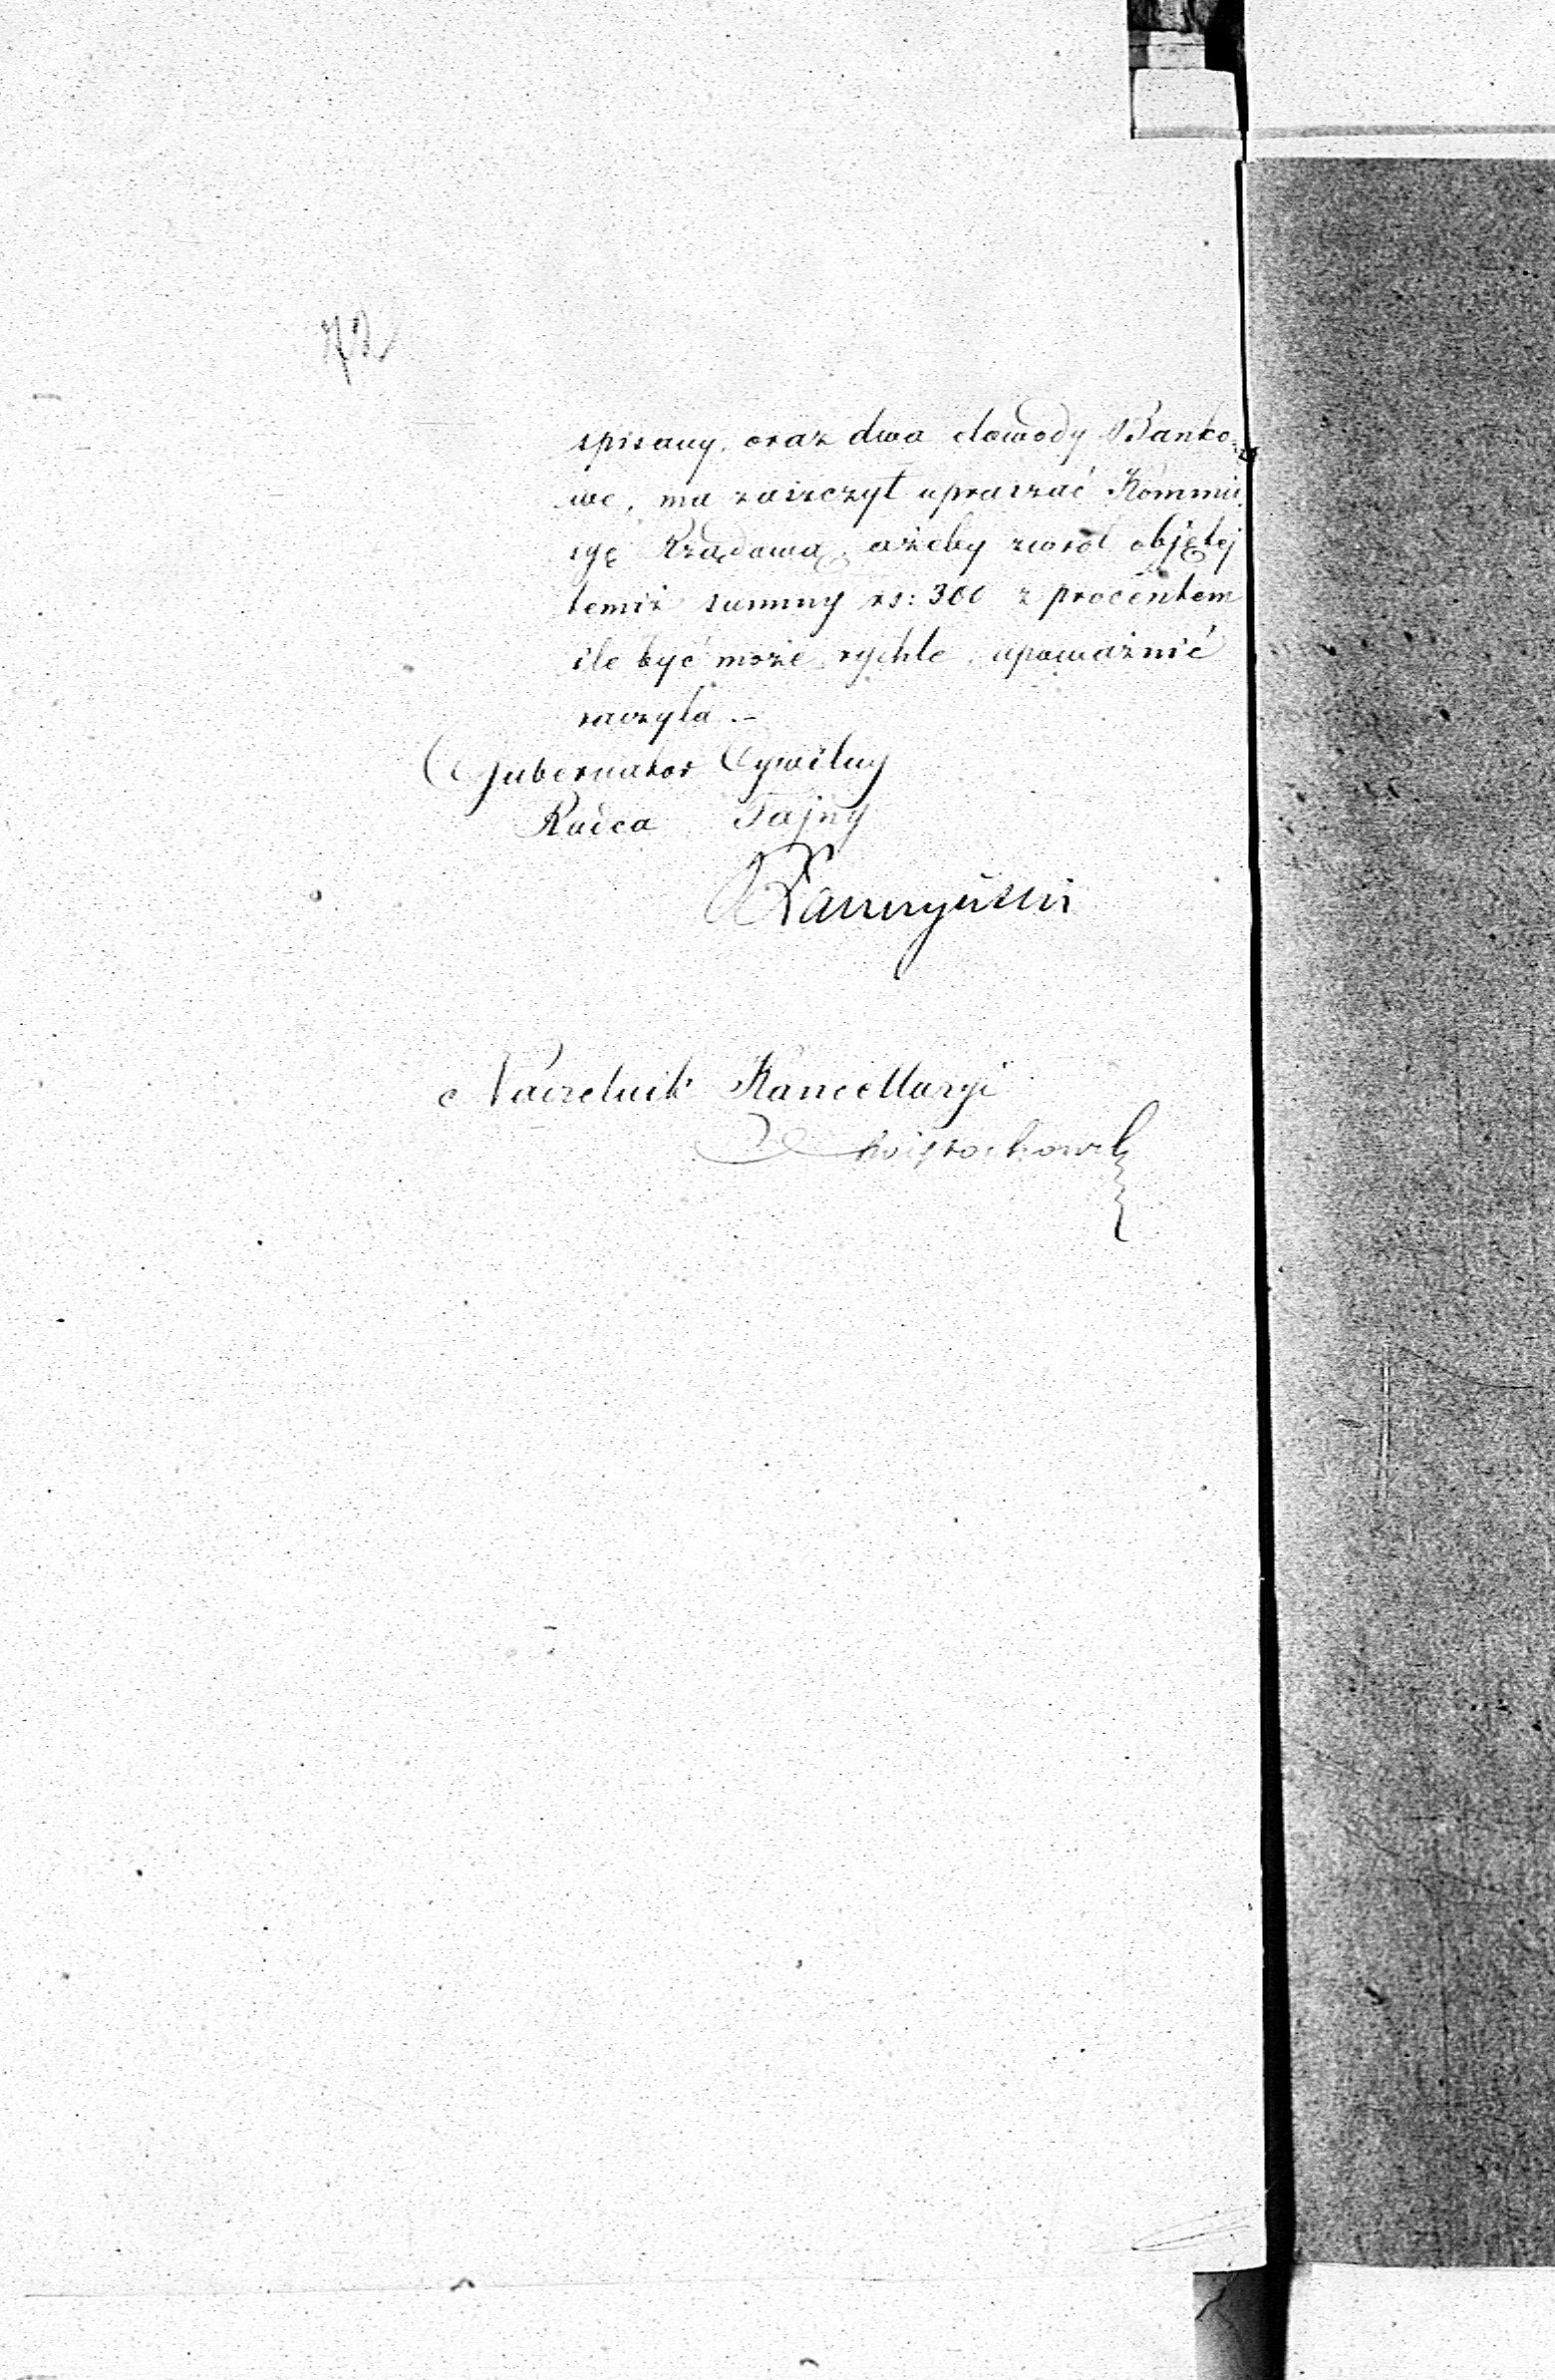 72
spisany, oraz dwa dowody Banko=
we, ma zaszczyt upraszać Kommis
syę Rządową, ażeby zwrot objętej
temiż summy rs: 300 z procentem
ile być może rychle, upoważnić
raczyła.-
Gubernator Cywilny
Radca Tajny
Naczelnik Kancellaryi